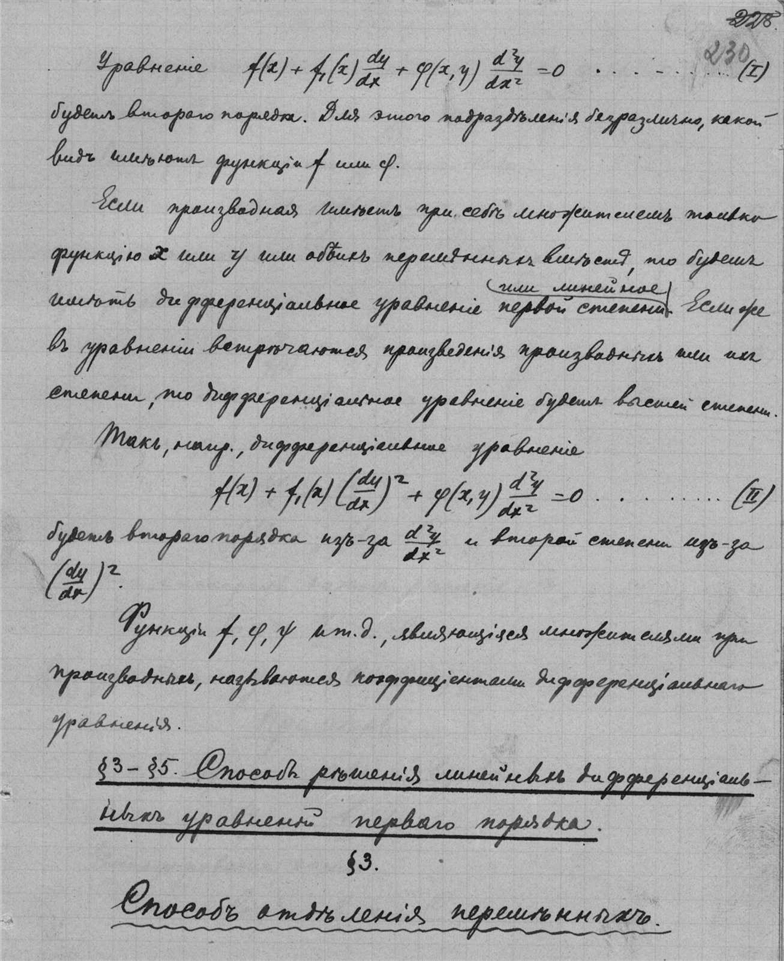 228.
230
Уравненіе f(x) + f₁(x) dy/dx + φ(x, y) d²y/dx² = 0 . . . . . . . . (I)
будетъ второго порядка. Для этого подраздѣленія безразлично, какой
видъ имѣютъ функціи f или φ.
Если производная имѣетъ при себѣ множителемъ только
функцію x или y или обѣихъ перемѣнныхъ вмѣстѣ, то будемъ
или линейное
имѣть дифференціальное уравненіе первой степени. Если же
въ уравненіи встрѣчаются произведенія производныхъ или ихъ
степени, то дифференціальное уравненіе будетъ высшей степени.
Такъ, напр., дифференціальное уравненіе
f(x) + f₁(x) (dy/dx)² + φ(x, y) d²y/dx² = 0 . . . . . . . . (II)
будетъ второго порядка изъ-за d²y/dx² и второй степени изъ-за
(dy/dx)².
Функціи f, φ, ψ и т.д., являющіяся множителями при
производныхъ, называются коэффиціентами дифференціальнаго
уравненія.
§3 – §5. Способъ рѣшенія линейныхъ дифференціаль-
ныхъ уравненій перваго порядка.
§3.
Способъ отдѣленія перемѣнныхъ.